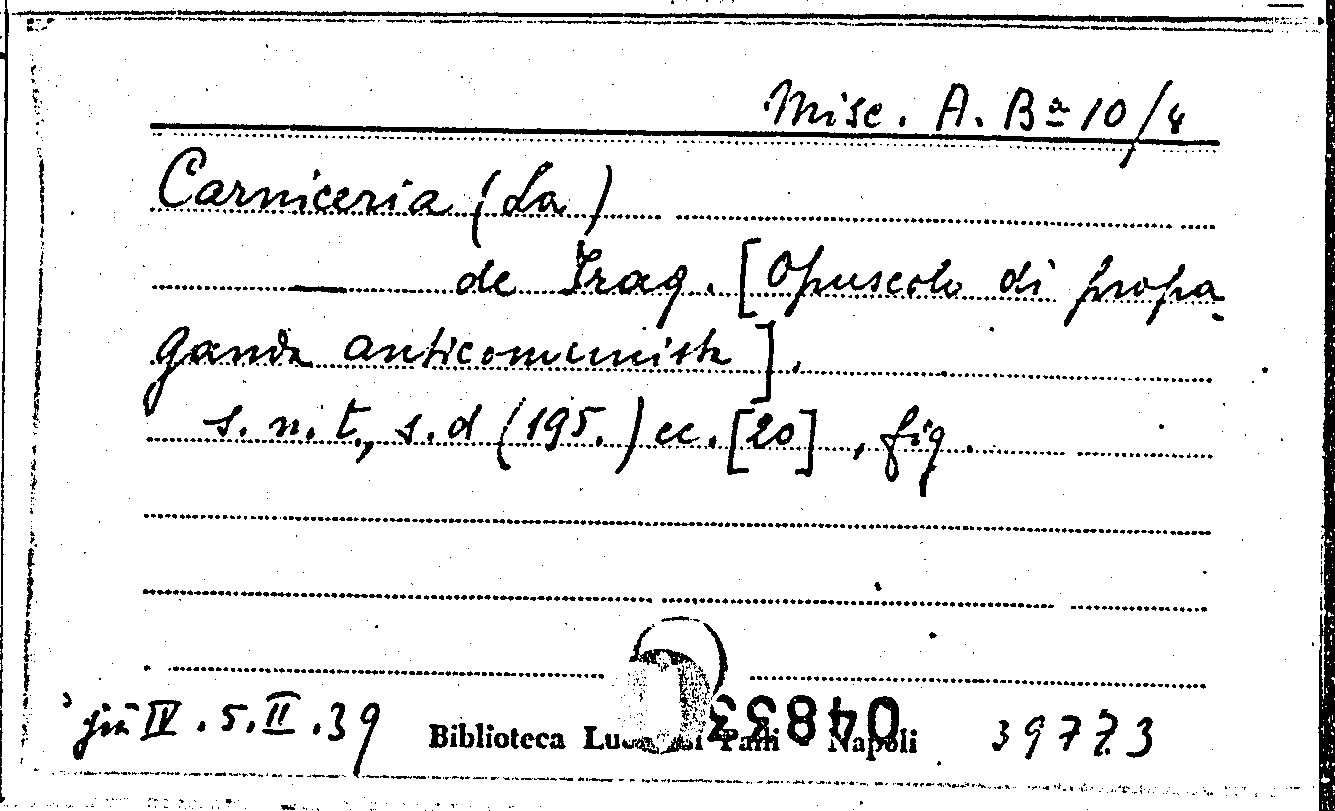 Misc. A. Bª 10/4
Carniceria (La)
— de Iraq. [Opuscolo di propa-
ganda anticomunista].
s.n.t., s.d (195.) cc. [20], fig.
già IV.5.II.39 Biblioteca Napoli 39773